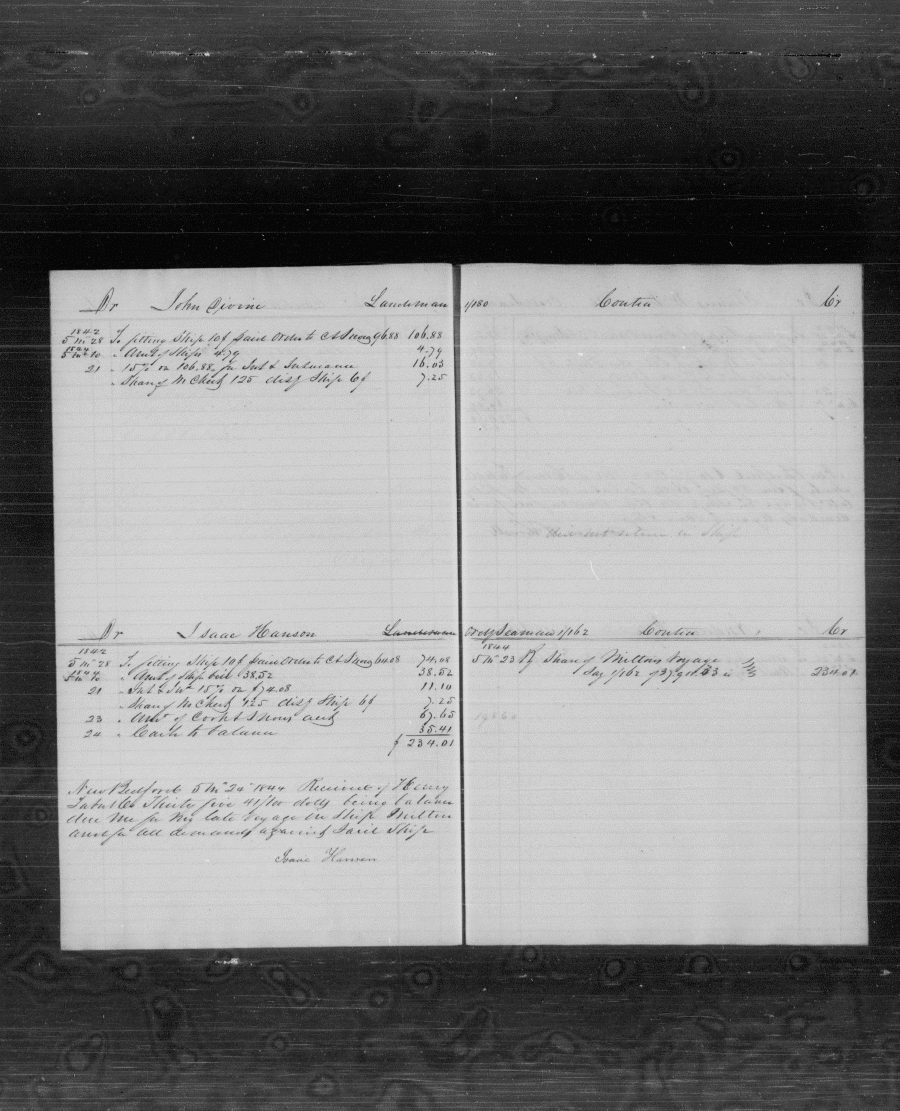 Dr John Divine Landsman 1/180 Contra Cr
1842
5 mo 28 To fitting Ship 10$ paid Order to C & Snow 96.88 106.88
1844
5 mo 10 " Amt of Ships 4.79 4.79
21 " 15% on 106.88 for Int & Insurance 16.03
" Share of M Chest 125 disg Ship 6$ 7.25
did not return in Ship
Dr Isaac Hanson Landsman Ordy Seaman 1/162 Contra Cr
1842
5 mo 28 To fitting Ship 10$ paid Order to C & Snow 64.08 74.08
1844
" Amt of Ship bill 38.52 38.52
21 " Int & Ins 15% on 74.08 11.10
" Share of M Chest 125 disg Ship 6$ 7.25
23 " Amt of Cook & Snows acct 67.65
24 " Cash to balance 35.41
$ 234.01
1844
5 mo 23 By Share of Miltons Voyage
Say 1/162 of 234.01
New Bedford 5 mo 24 1844 Received of Henry
Taber & Co Thirty five 41/100 dolls being balance
due me for my late voyage in Ship Milton
and for all demands against said Ship
Isaac Hanson